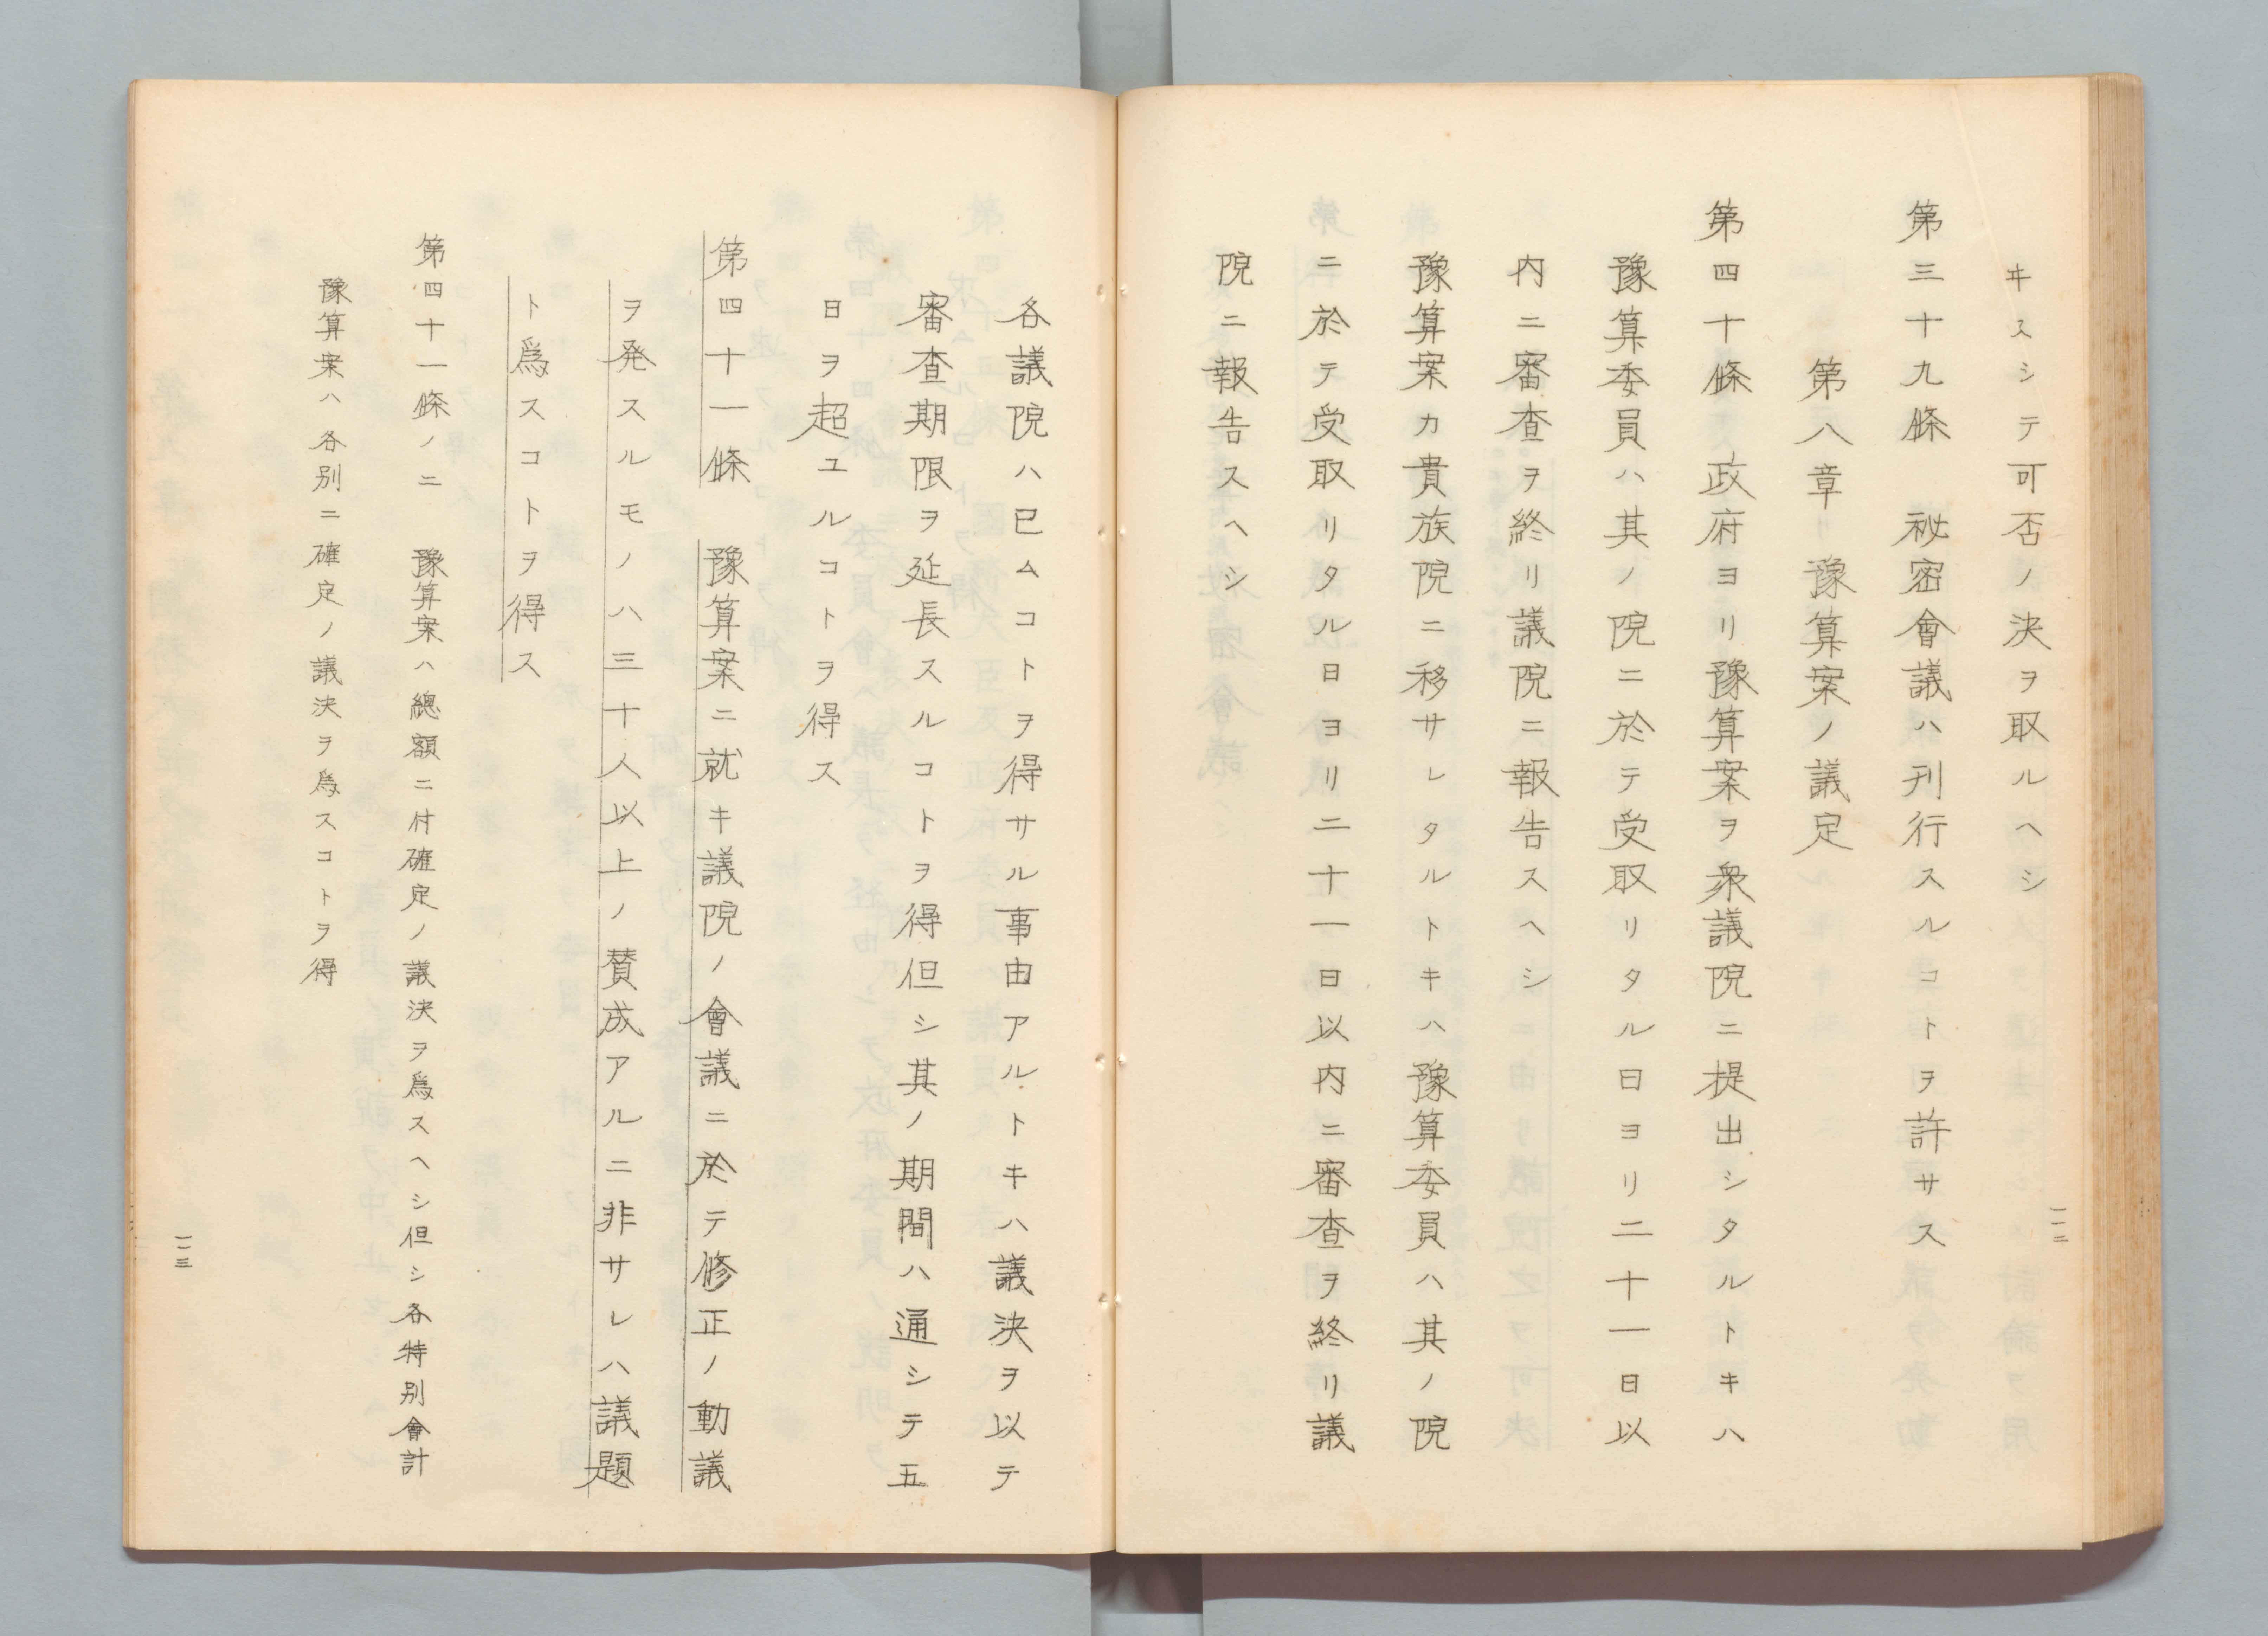 キスシテ可否ノ決ヲ取ルヘシ
第三十九條　秘密會議ハ刊行スルコトヲ許サス
第八章　豫算案ノ議定
第四十條　政府ヨリ豫算案ヲ衆議院ニ提出シタルトキハ
豫算委員ハ其ノ院ニ於テ受取リタル日ヨリ二十一日以
内ニ審査ヲ終リ議院ニ報告スヘシ
豫算案カ貴族院ニ移サレタルトキハ豫算委員ハ其ノ院
ニ於テ受取リタル日ヨリ二十一日以内ニ審査ヲ終リ議
院ニ報告スヘシ
一二
各議院ハ已ムコトヲ得サル事由アルトキハ議決ヲ以テ
審査期限ヲ延長スルコトヲ得但シ其ノ期間ハ通シテ五
日ヲ超ユルコトヲ得ス
第四十一條　豫算案ニ就キ議院ノ會議ニ於テ修正ノ動議
ヲ発スルモノハ三十人以上ノ賛成アルニ非サレハ議題
ト爲スコトヲ得ス
第四十一條ノニ　豫算案ハ總額ニ付確定ノ議決ヲ爲スヘシ但シ各特別會計
豫算案ハ各別ニ確定ノ議決ヲ爲スコトヲ得
一三